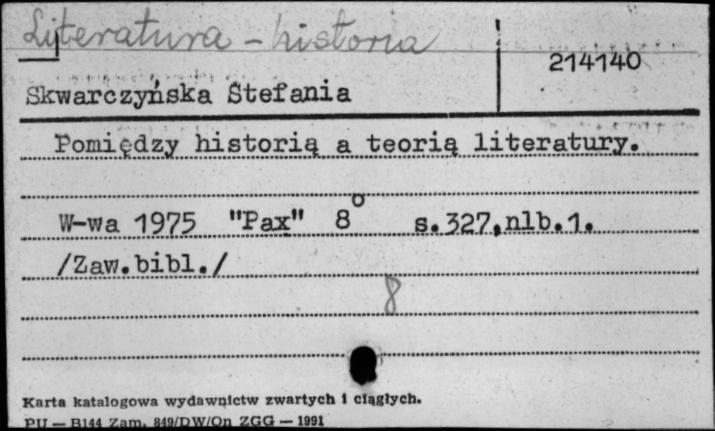 Literatura - historia
214140
Skwarczyńska Stefania
Pomiędzy historią a teorią literatury.
W-wa 1975 "Pax" 8° s.327,nlb.1.
/Zaw.bibl./
8
Karta katalogowa wydawnictw zwartych i ciągłych.
PU — B144 Zam. 849/DW/On ZGG — 1991